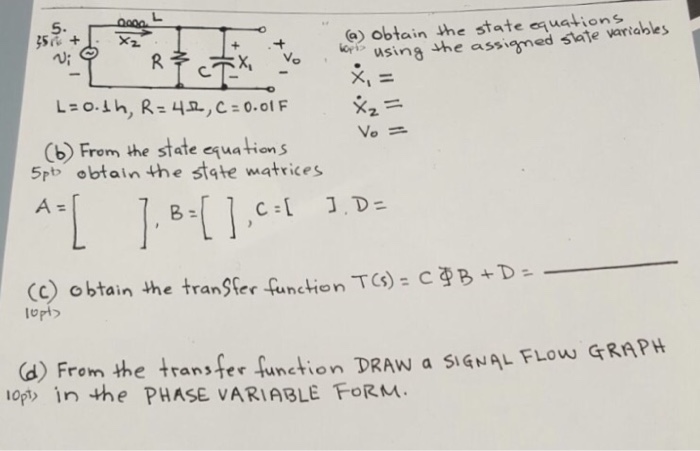 5.
35pts
L
X₂
+
Vi
−
R
C
+
X₁
−
+
Vo
−
L=0.1h, R=4Ω, C=0.01F
(a) Obtain the state equations
10pts using the assigned state variables
Ẋ₁ =
Ẋ₂ =
Vo =
(b) From the state equations
5pts obtain the state matrices
A = [ ], B = [ ], C = [ ], D =
(c) obtain the transfer function T(s) = CΦB + D =
10pts
(d) From the transfer function DRAW a SIGNAL FLOW GRAPH
10pts in the PHASE VARIABLE FORM.